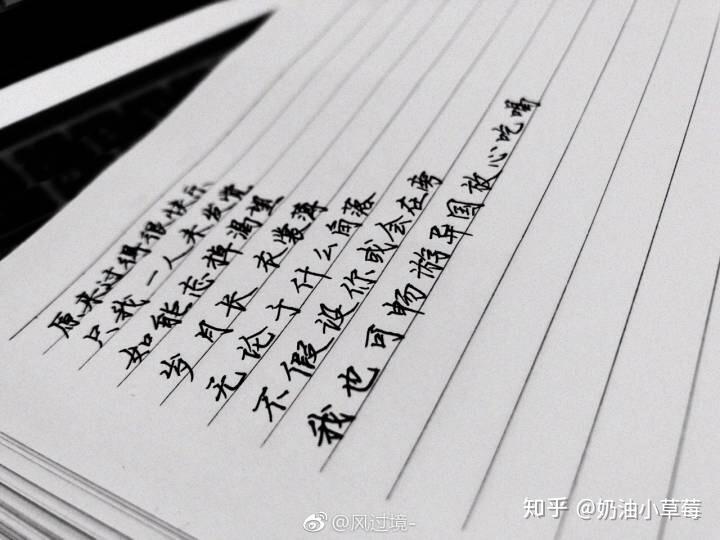 原来过得很快乐
只我一人未发觉
如能忘掉渴望
岁月长 衣裳薄
无论于什么角落
不假设你或会在旁
我也可畅游异国放心吃喝
@风过境-
知乎 @奶油小草莓